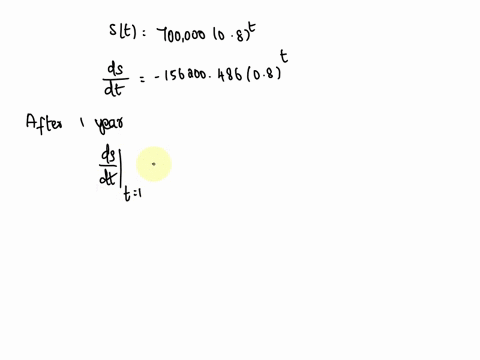 S(t) = 700,000 (0.8)^t
ds/dt = -156200.486 (0.8)^t
After 1 year
ds/dt |_{t=1}